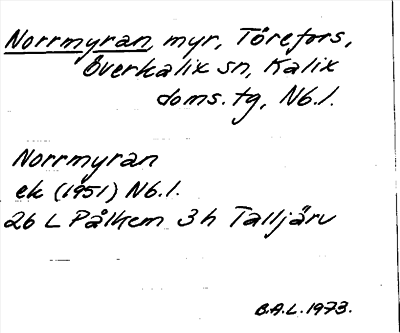 Norrmyran, myr, Törefors,
Överkalix sn, Kalix
doms. tg, Nb.l.
Norrmyran
ek (1951) Nb.l.
26 L Pålkem 3h Talljärv
B.A.L. 1973.